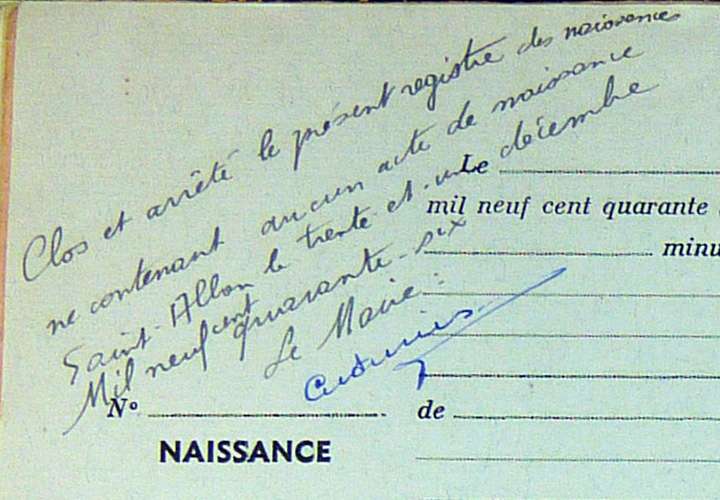 Clos et arrêté le présent registre des naissances
ne contenant aucun acte de naissance
Saint-Alban le trente et un décembre
Mil neuf cent quarante-six
Le Maire :
Le
mil neuf cent quarante
minu
No
de
NAISSANCE